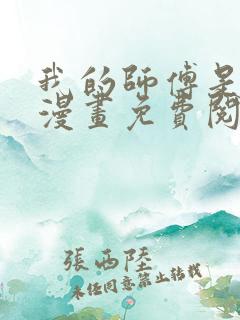 我的師傅是
漫畫免費閱
張西陸
未任同意禁止轉載